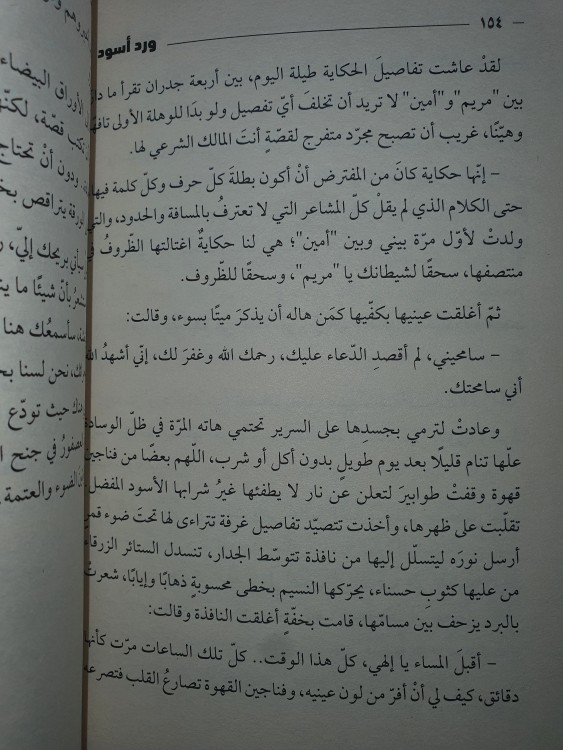 ١٥٤
ورد أسود
لقدْ عاشت تفاصيلَ الحكاية طيلة اليوم، بين أربعة جدران تقرأ ما دار
بين "مريم" و"أمين" لا تريد أن تخلفَ أيّ تفصيل ولو بدَا للوهلة الأولى تافهًا
وهيّنًا، غريب أن تصبح مجرّد متفرج لقصّةٍ أنتَ المالك الشرعي لها.
– إنّها حكاية كانَ من المفترض أنْ أكون بطلةَ كلّ حرف وكلّ كلمة فيها
حتى الكلام الذي لم يقلْ كلّ المشاعر التي لا تعترفُ بالمسافة والحدود، والتي
ولدتْ لأوّل مرّة بيني وبين "أمين"؛ هي لنا حكايةٌ اغتالتها الظّروفُ في
منتصفها، سحقًا لشيطانك يا "مريم"، وسحقًا للظّروف.
ثمّ أغلقت عينيها بكفّيها كمَن هاله أن يذكرَ ميتًا بسوء، وقالت:
– سامحيني، لم أقصدِ الدّعاء عليك، رحمك الله وغفرَ لك، إنّي أشهدُ الله
أني سامحتك.
وعادتْ لترمي بجسدِها على السرير تحتمي هاته المرّة في ظلّ الوسادة
علّها تنام قليلًا بعد يوم طويلٍ بدون أكل أو شرب، اللّهم بعضًا من فناجين
قهوة وقفتْ طوابيرَ لتعلن عن نار لا يطفئها غيرُ شرابها الأسود المفضل
تقلّبت على ظهرها، وأخذت تتصيّد تفاصيل غرفة تتراءى لها تحتَ ضوء قمر
أرسل نورَه ليتسلّل إليها من نافذة تتوسّط الجدار، تنسدل الستائر الزرقاء
من عليها كثوبِ حسناء، يحرّكها النسيم بخطى محسوبةٍ ذهابًا وإيابًا، شعرتْ
بالبرد يزحف بين مسامّها، قامت بخفّةٍ أغلقت النافذة وقالت:
– أقبلَ المساء يا إلهي، كلّ هذا الوقت.. كلّ تلك الساعات مرّت كأنها
دقائق، كيف لي أنْ أفرّ من لون عينيه، وفناجين القهوة تصارعُ القلب فتصرعه
الأوراق البيضاء
تكتب قصّة، لكنّها
ودون أنْ تحتاج
يتراقص
بريحك إليّ
بأنّ شيئًا ما
سأسمعُك هنا
نحن لسنا
حيث تودّع
في جنح
الضوء والعتمة